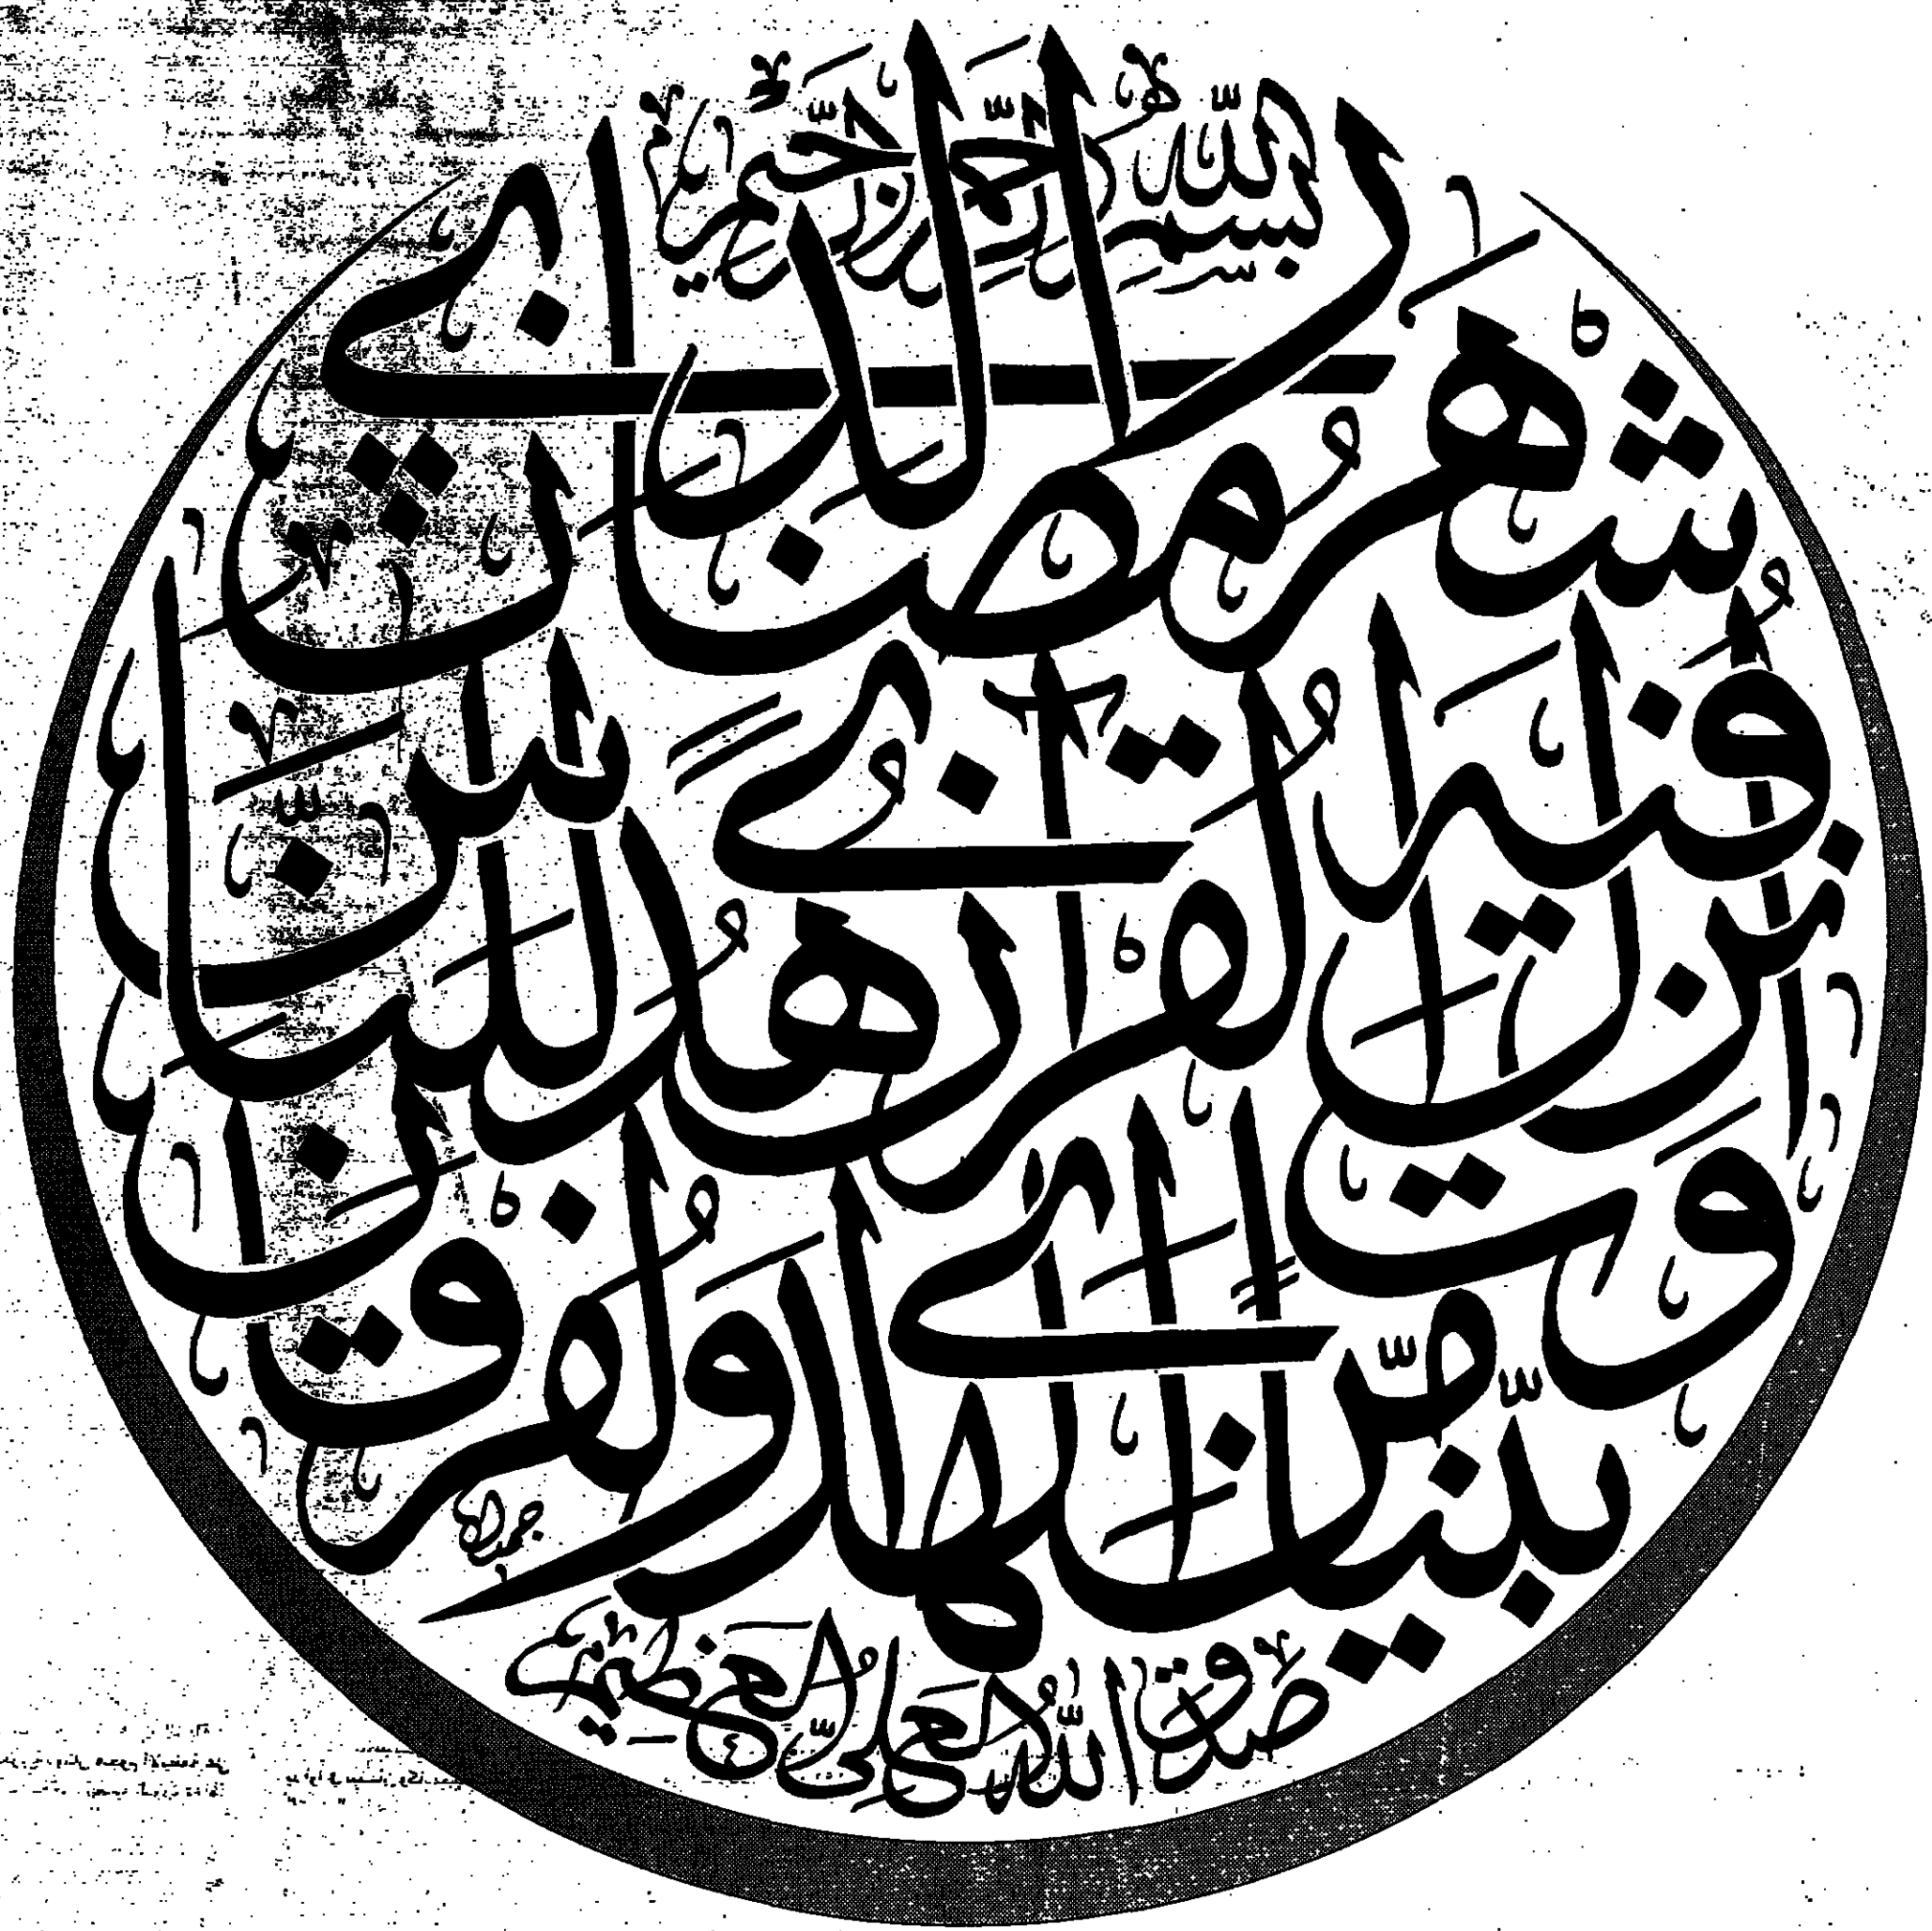 بِسْمِ اللَّهِ الرَّحْمَنِ الرَّحِيمِ
شَهْرُ رَمَضَانَ الَّذِي
أُنْزِلَ فِيهِ الْقُرْآنُ هُدًى لِلنَّاسِ
وَبَيِّنَاتٍ مِنَ الْهُدَى وَالْفُرْقَانِ
صَدَقَ اللَّهُ الْعَلِيُّ الْعَظِيمُ